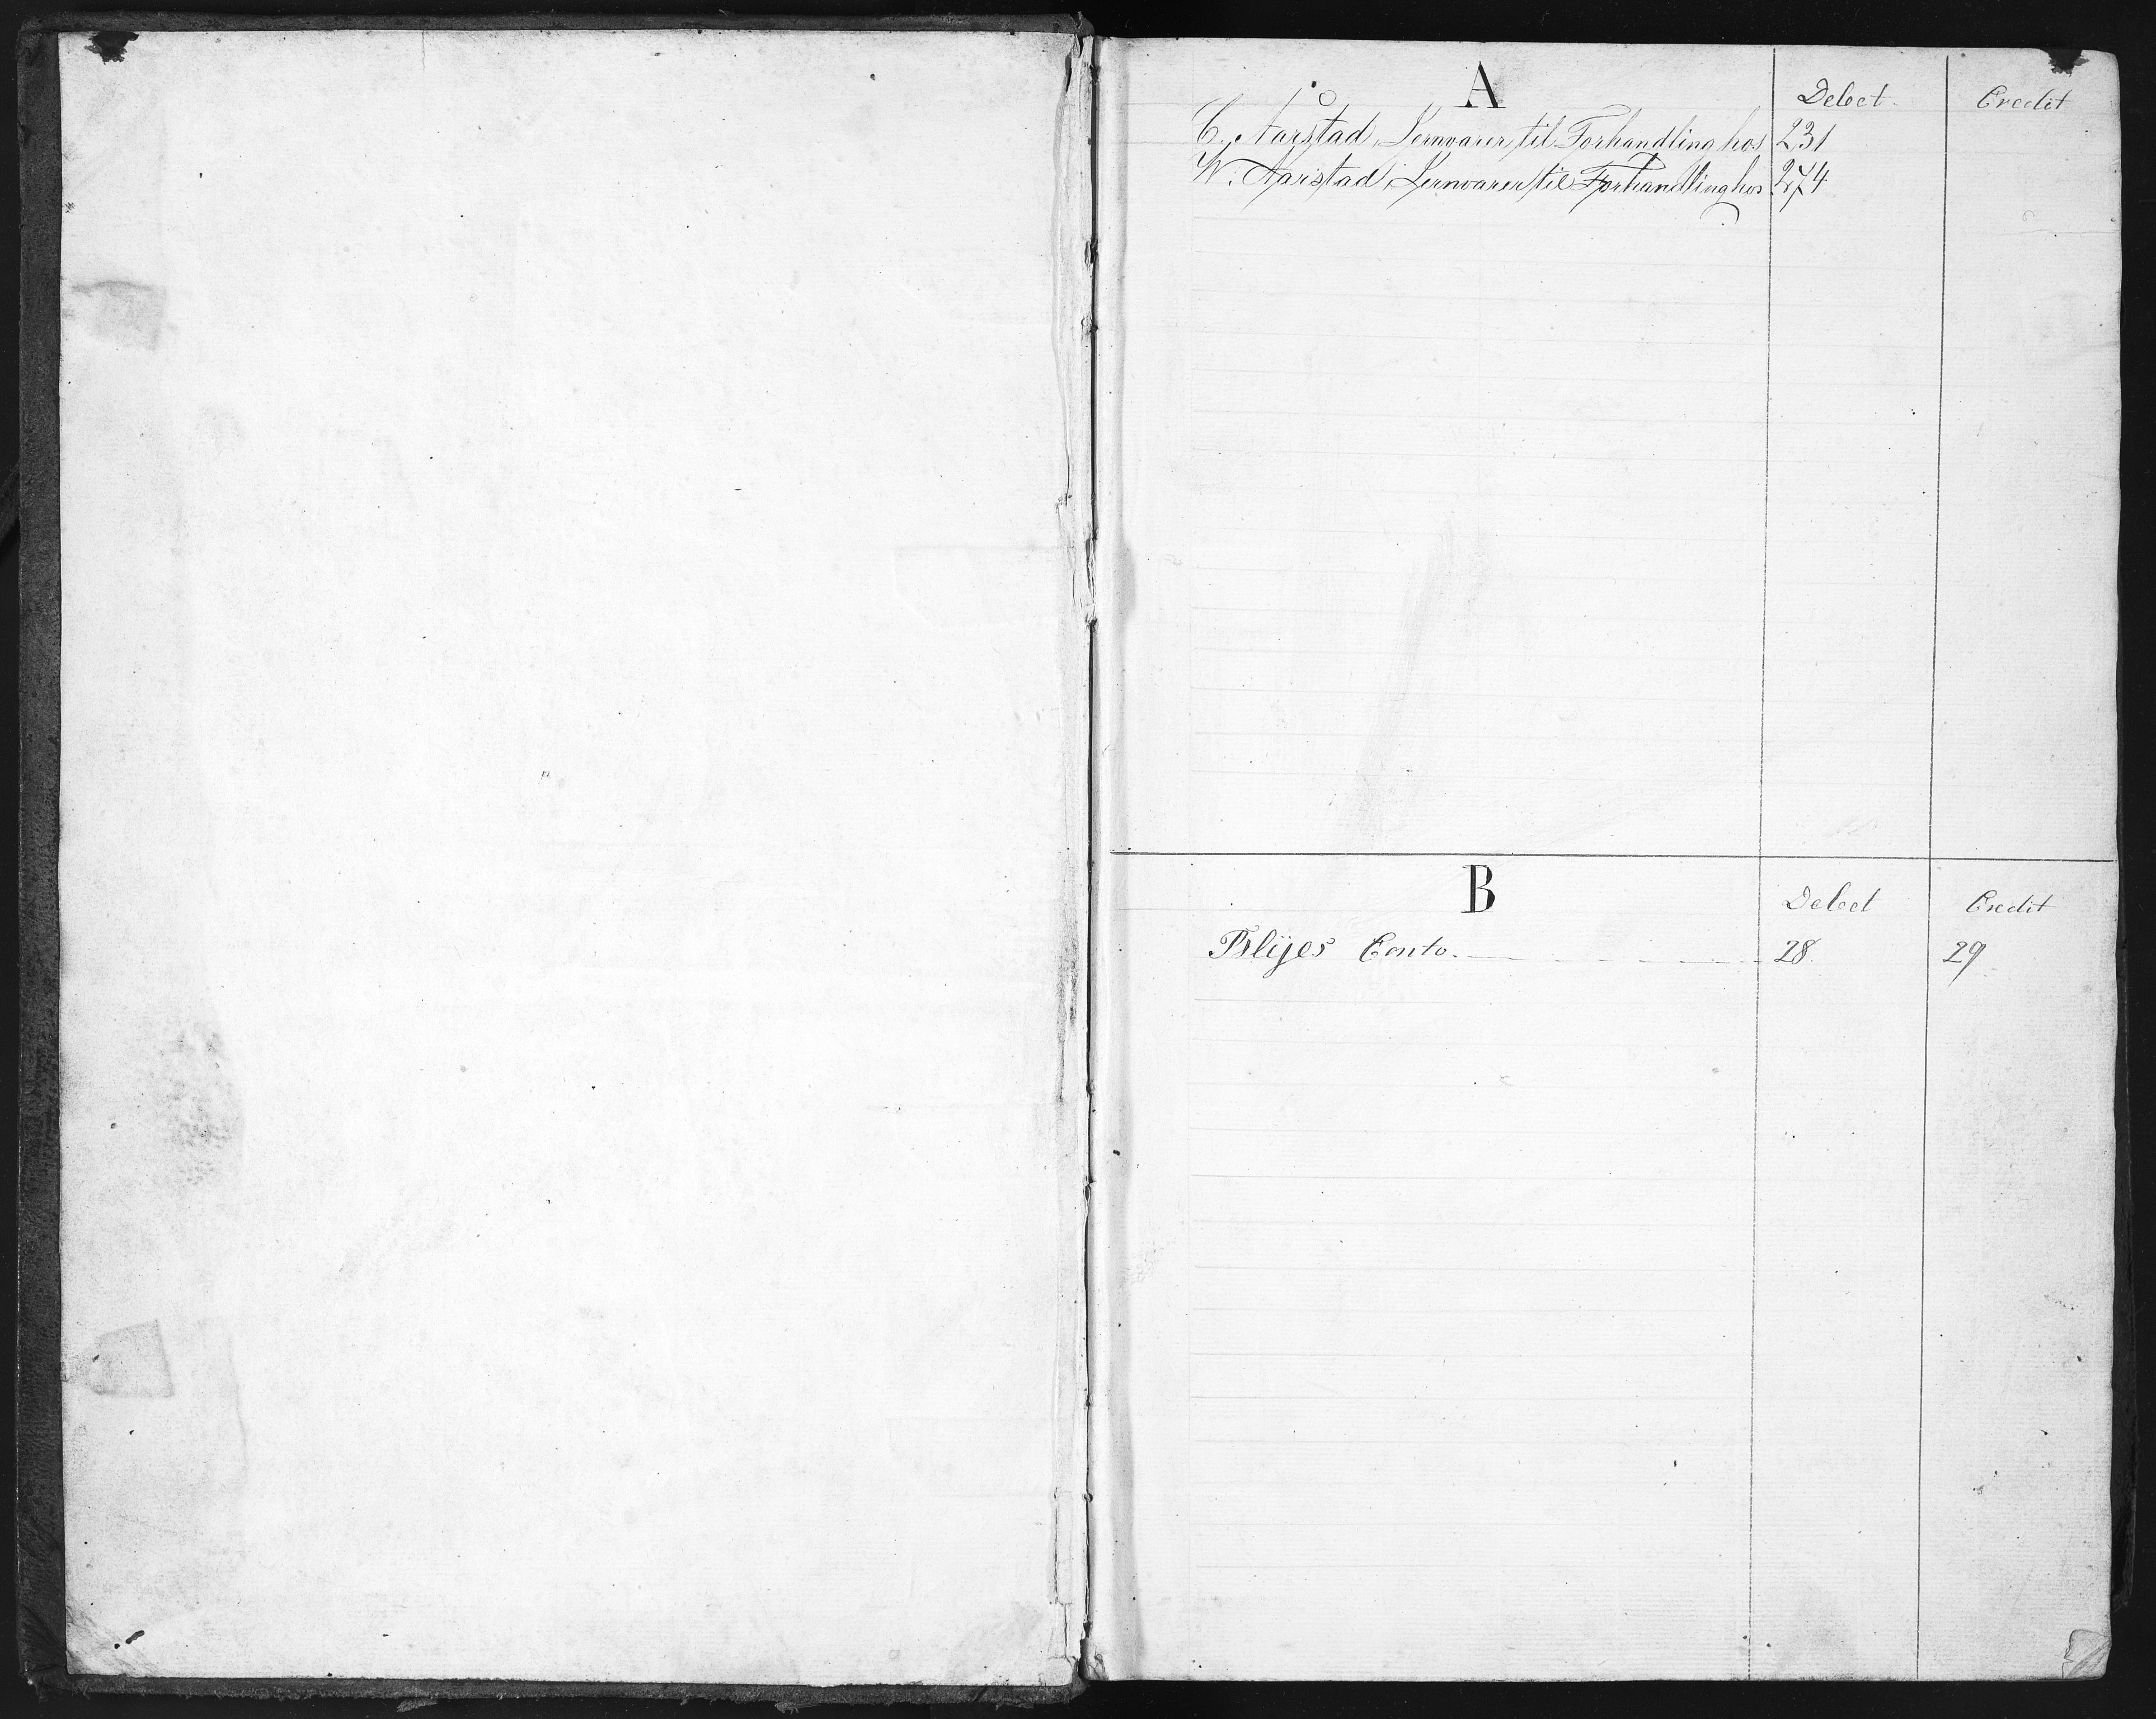 A Debet Credit
C. Aarstad, Jernvarer til Forhandling hos 231
W. Aarstad, Jernvarer til Forhandling hos 274
B Debet Credit
Blyes Conto. 28 29